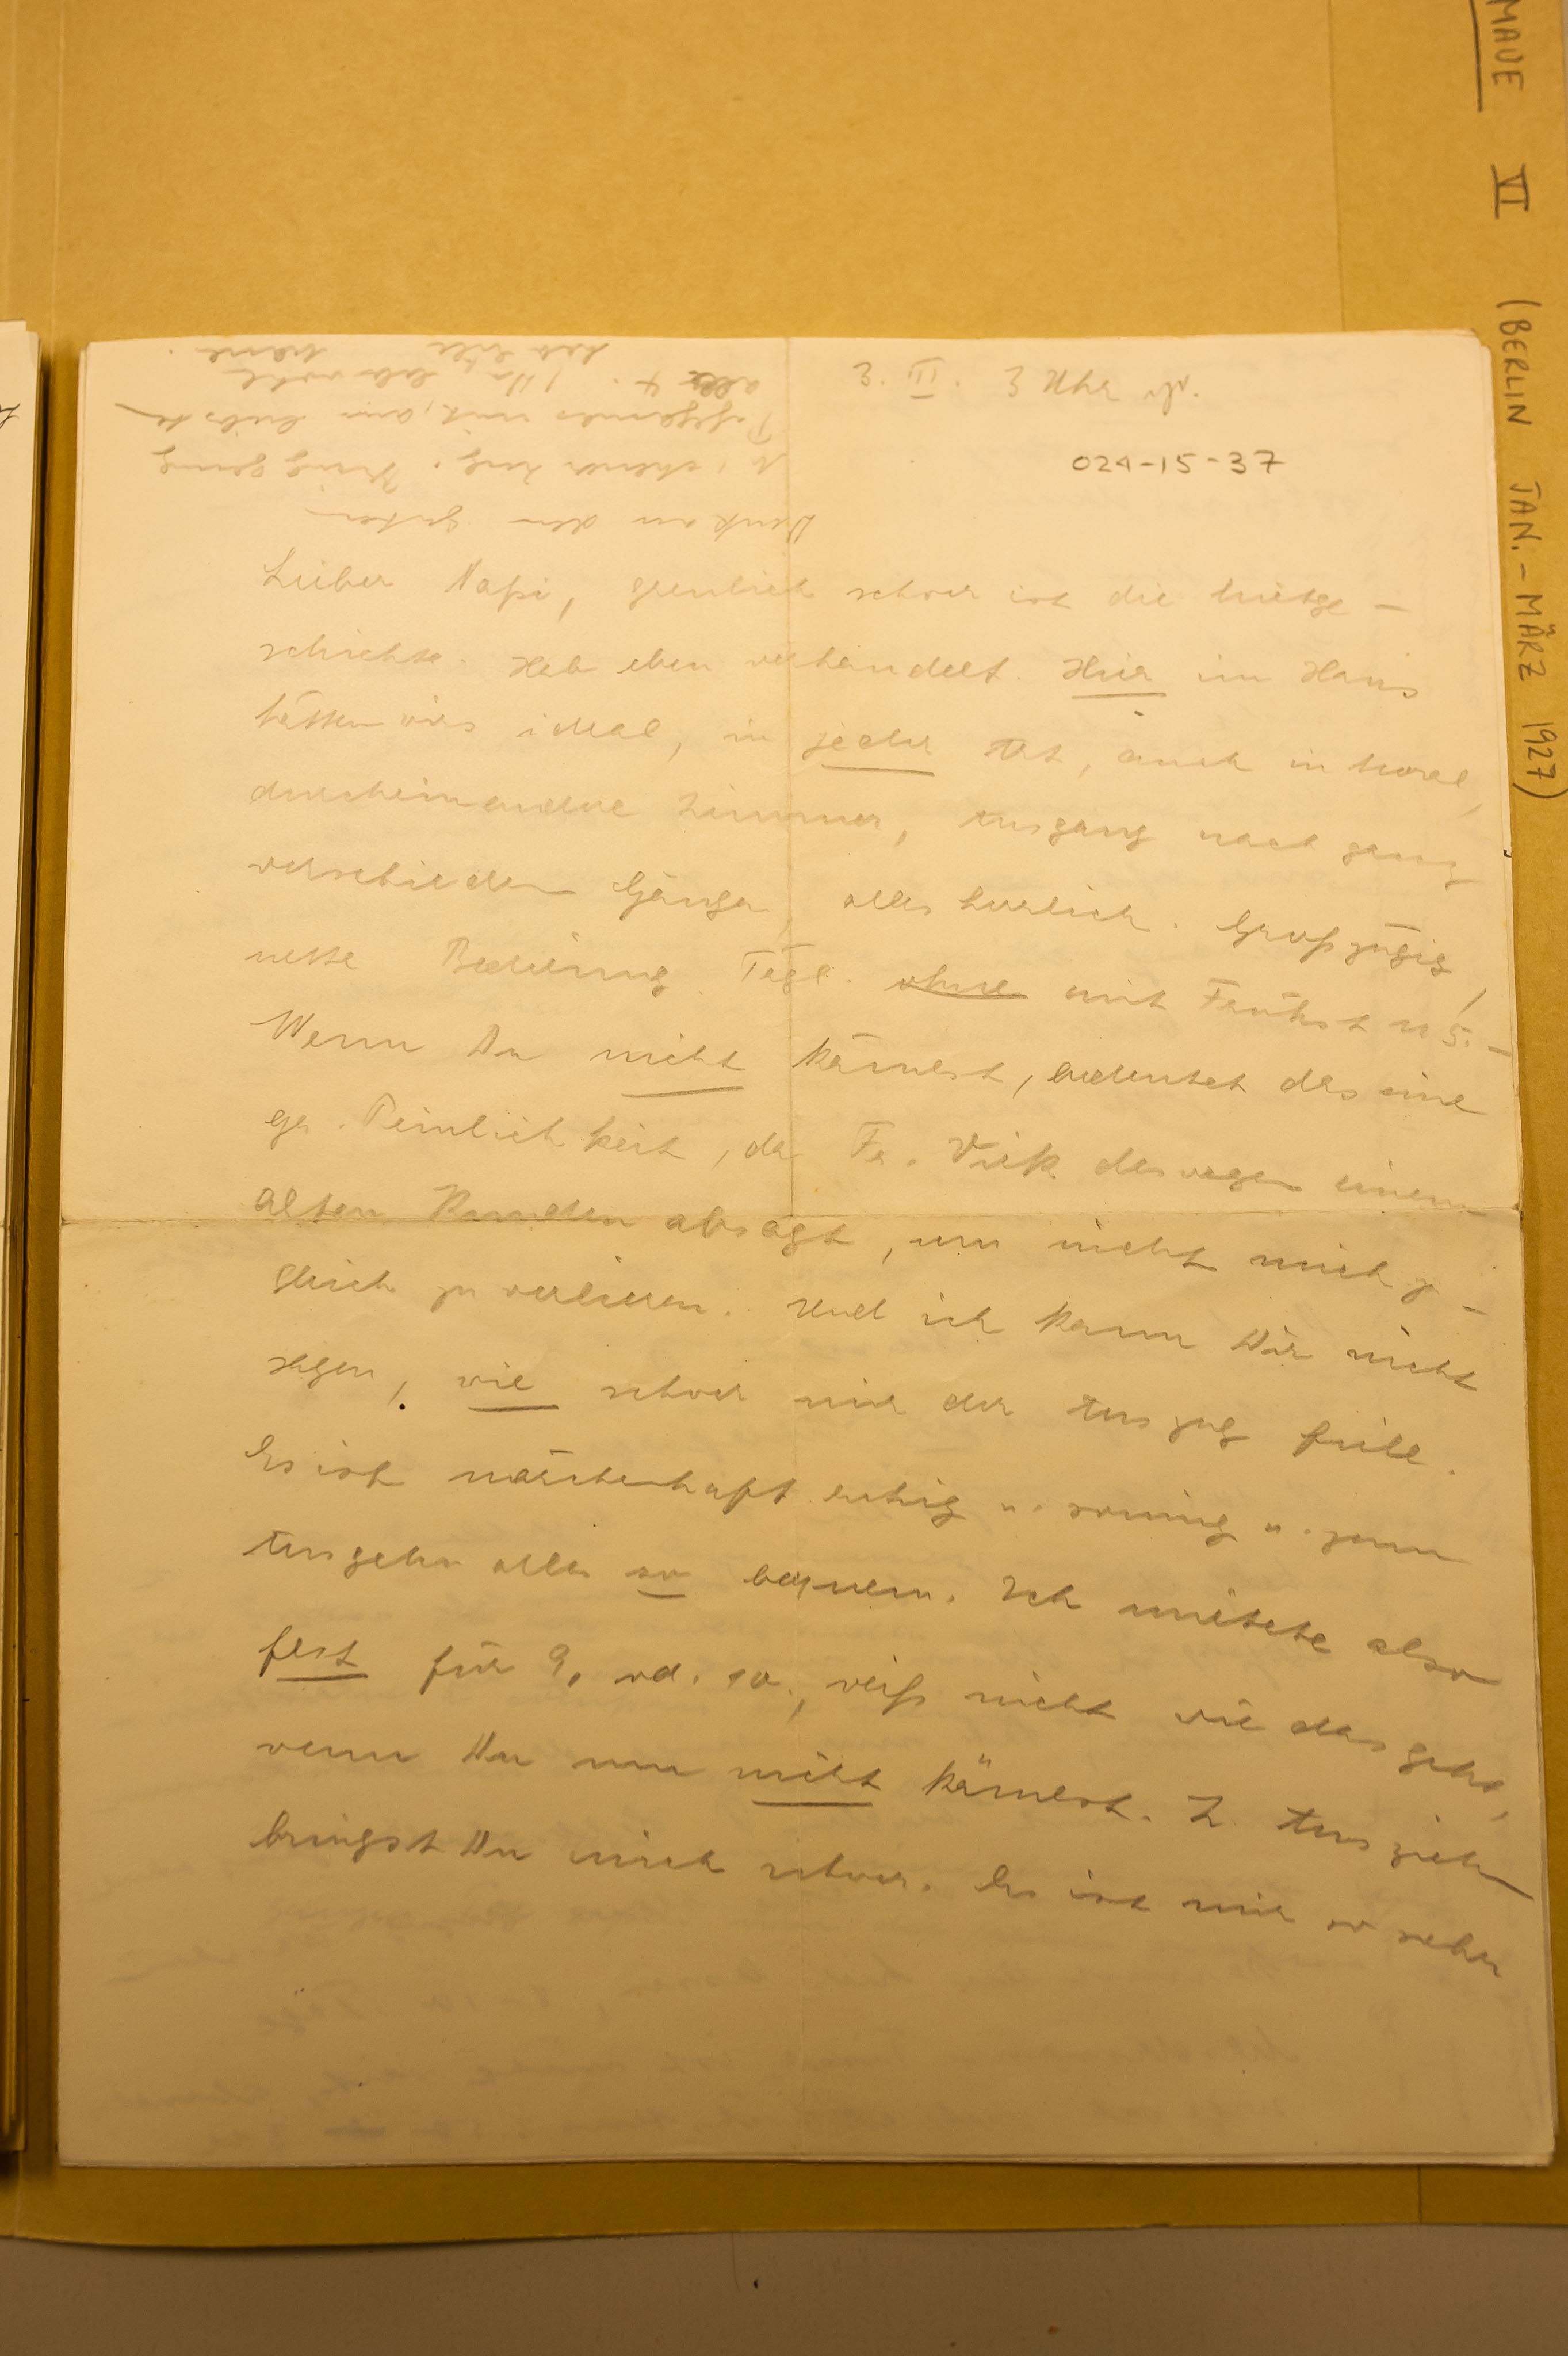 MAUE VI (BERLIN JAN.-MÄRZ 1927)
3. III. 3 Uhr
024-15-37
Denk an den guten
alles
Lieber Napi, greulich schwer ist die Mietge-
schichte. Hab eben verhandelt. Hier im Haus
hätten wirs ideal, in jeder Art, auch in Moral,
durcheinander Zimmer, Ausgang nach ganz
verschieden Gänge, alles herrlich. Großzügig,
nette Bedienung. Tägl. ohne mit Frühst M 5.–
Wenn Du nicht kämest, bedeutet das eine
gr. Peinlichkeit, da Fr. Viek deswegen einem
alten Kunden absagt, um nicht mich zu-
gleich zu verlieren. Und ich kann Dir nicht
sagen, wie schwer mir der Auszug fiele.
Es ist märchenhaft ruhig u. sonnig u. zum
Ausgehn alles so bequem. Ich mietete also
fest für 9. od. 10., weiß nicht wie das geht,
wenn Du nun nicht kämest. Z. Ausziehn
bringst Du mich schwer. Es ist mir so sehr